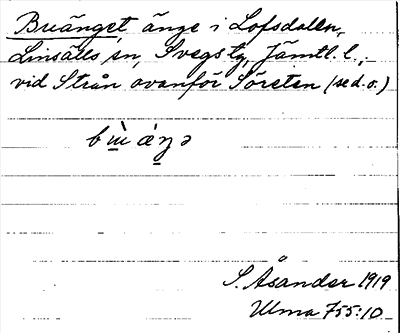 Buänget, änge i Lofsdalen,
Linsälls sn, Svegs tg, Jämtl. l.,
vid Strån ovanför Söreten (se d. o.)
S. Åsander 1919
Ulma 755:10